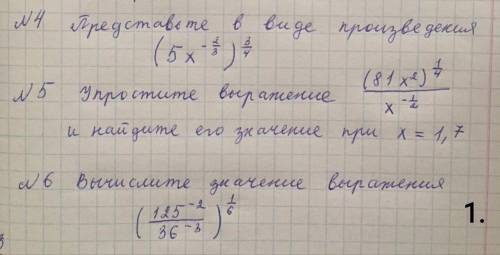 №4 Представьте в виде произведения
(5x^{-\frac{2}{3}})^{\frac{3}{4}}
№5 Упростите выражение \frac{(81x^2)^{\frac{1}{4}}}{x^{-\frac{1}{2}}}
и найдите его значение при x = 1,7
№6 Вычислите значение выражения
(\frac{125^{-2}}{36^{-3}})^{\frac{1}{6}}
1.